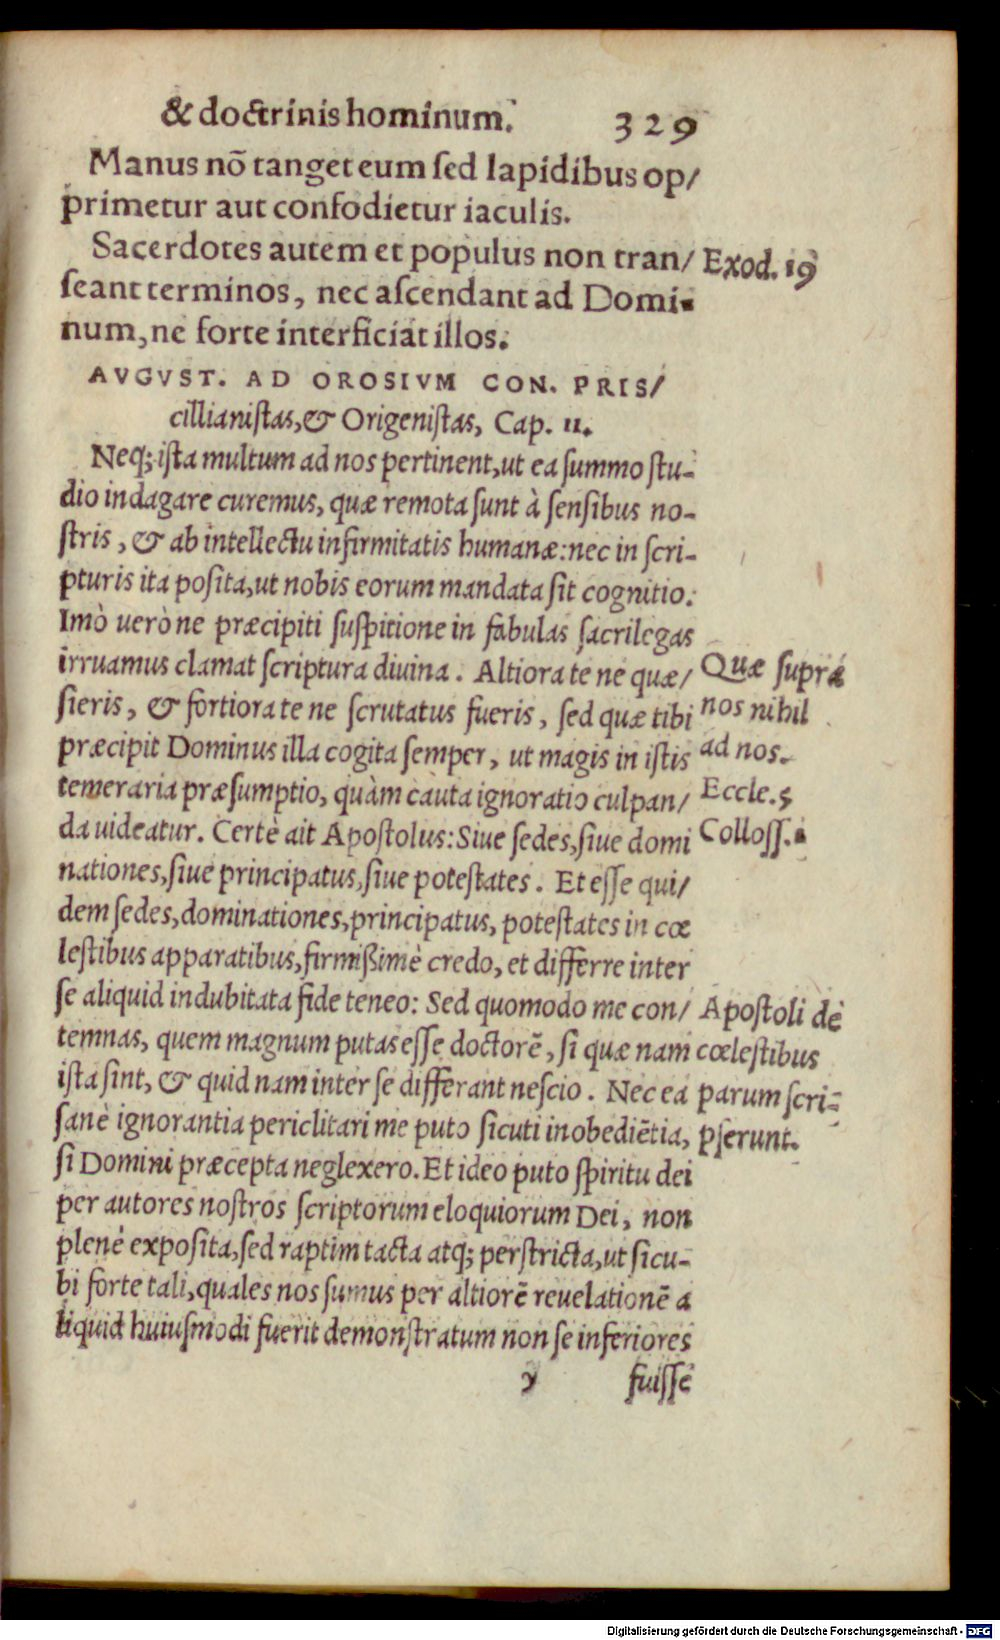 & doctrinis hominum. 329
Manus nō tanget eum sed lapidibus op/
primetur aut confodietur iaculis.
Sacerdotes autem et populus non tran/
Exod. 19
seant terminos, nec ascendant ad Domi-
num, ne forte interficiat illos.
AVGVST. AD OROSIVM CON. PRIS/
cillianistas, & Origenistas, Cap. 11.
Neq; ista multum ad nos pertinent, ut ea summo stu-
dio indagare curemus, quæ remota sunt à sensibus no-
stris, & ab intellectu infirmitatis humanæ: nec in scri-
pturis ita posita, ut nobis eorum mandata sit cognitio.
Imò uerò ne præcipiti suspitione in fabulas sacrilegas
irruamus clamat scriptura diuina. Altiora te ne quæ/
Quæ suprá
sieris, & fortiora te ne scrutatus fueris, sed quæ tibi
nos nihil
præcipit Dominus illa cogita semper, ut magis in istis
ad nos.
temeraria præsumptio, quàm cauta ignoratio culpan/
Eccle. 5
da uideatur. Certè ait Apostolus: Siue sedes, siue domi
Colloss. 1
nationes, siue principatus, siue potestates. Et esse qui/
dem sedes, dominationes, principatus, potestates in cœ
lestibus apparatibus, firmißimè credo, et differre inter
se aliquid indubitata fide teneo: Sed quomodo me con/
Apostoli de
temnas, quem magnum putas esse doctorē, si quæ nam
cœlestibus
ista sint, & quid nam inter se differant nescio. Nec ea
parum scri-
sanè ignorantia periclitari me puto sicuti inobediētia,
pserunt.
si Domini præcepta neglexero. Et ideo puto spiritu dei
per autores nostros scriptorum eloquiorum Dei, non
plenè exposita, sed raptim tacta atq; perstricta, ut sicu-
bi forte tali, quales nos sumus per altiorē reuelationē a
liquid huiusmodi fuerit demonstratum non se inferiores
y fuisse
Digitalisierung gefördert durch die Deutsche Forschungsgemeinschaft - DFG